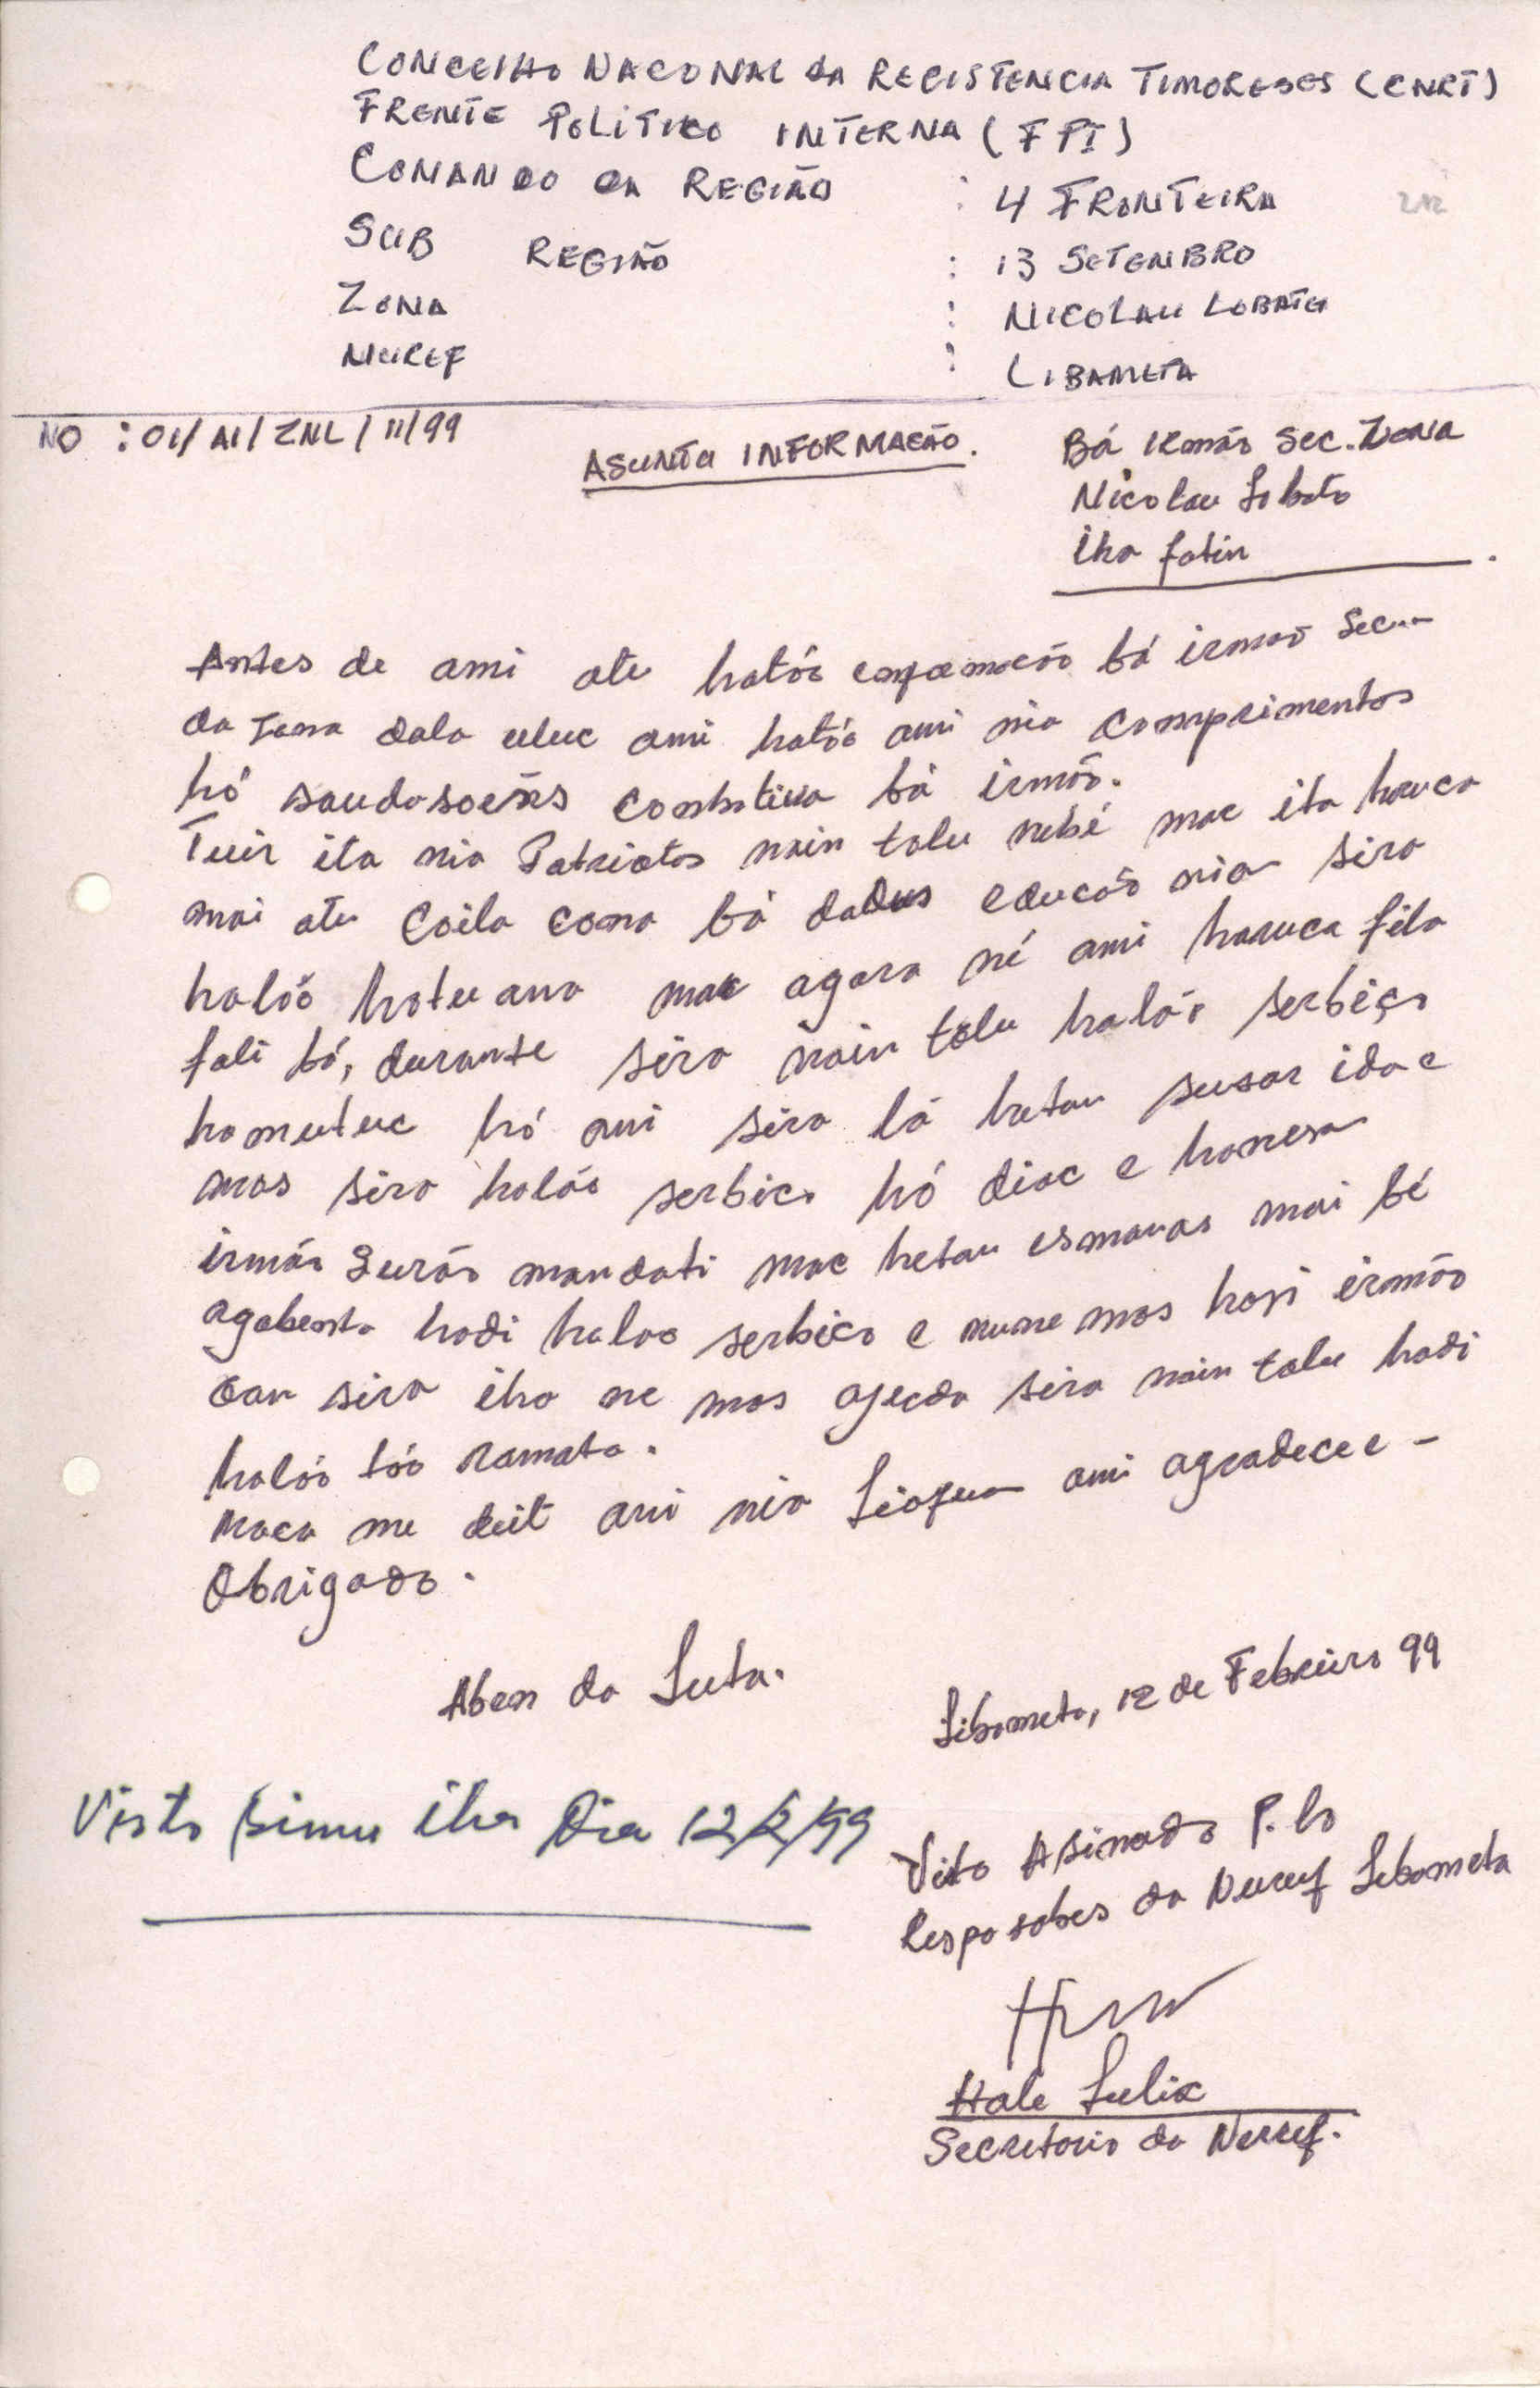 CONCELHO NACONAL DA RECISTENCIA TIMORESES (CNRT)
FRENTE POLITICO INTERNA (FPI)
COMANDO DA REGIÃO : 4 FRONTEIRA
SUB REGIÃO : 13 SETENBRO
ZONA : NICOLAU LOBATO
NUREF : LIBAMETA
NO : 01/AI/ZNL/II/99
ASUNTO INFORMACÃO.
Bá Irmão Sec. Zona
Nicolau Lobato
iha fatin
Antes de ami atu hatóo bá irmaõ Sec
da Zona dala uluc ami hatóo ami nia comprimentos
hó saudasoẽs combativa bá irmão.
Tuir ita nia Patriotas nain tolu nebé mac ita haruca
mai atu coila cona bá dadus educaõ nian sira
halóo hotu ana mac agora né ami haruca fila
fali bá, durante sira nain tolu halóo serbiço
hamutuc hó ami sira lá hetan susar ida e
mos sira halóo serbico hó diac e hanesan
irmão Surão mandati mac hetan esmanas mai bé
agabenta hodi haloo serbico e nune mos hosi irmão
oan sira iha ne mos ajuda sira nain tolu hodi
halóo tóo ramata.
Maca ne deit ami nia liafuan ami agradece e -
Obrigado.
Aben da Luta.
Libameta, 12 de Febreiro 99
Visto simu iha Dia 12/2/99
Vito Asinado P. lo
Resposabes da Nuref Libameta
Hale Lulic
Secretario da Nuref.